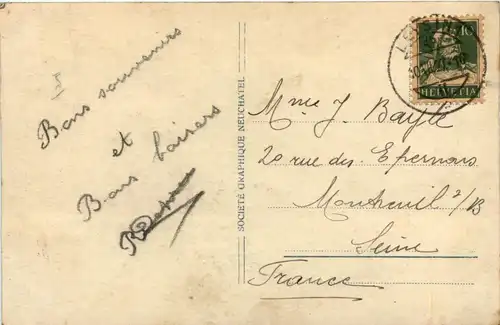 Bons souvenirs
et
Bons baisers
SOCIÉTÉ GRAPHIQUE NEUCHATEL
10
HELVETIA
Mme J. Bayle
20 rue des Epernons
Montreuil s/B
Seine
France